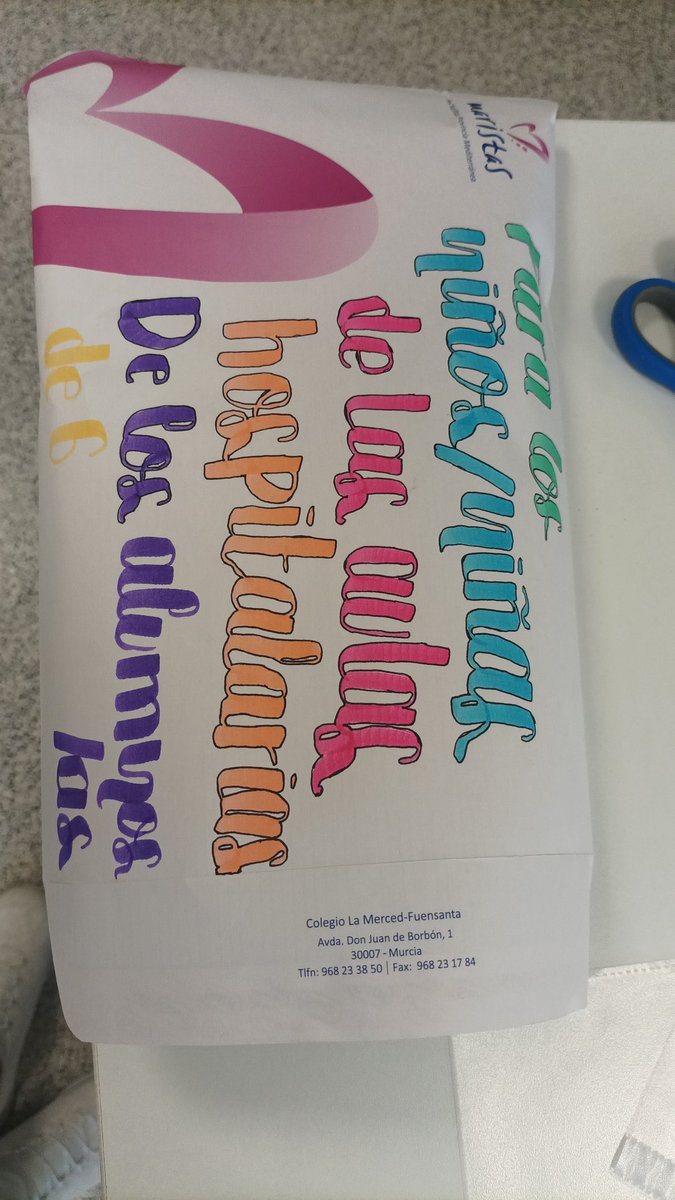 maristas
Provincia Mediterránea
Para los
niños/niñas
de las aulas
hospitalarias
De los alumnos
/as
de 6
Colegio La Merced-Fuensanta
Avda. Don Juan de Borbón, 1
30007 - Murcia
Tlfn: 968 23 38 50 | Fax: 968 23 17 84